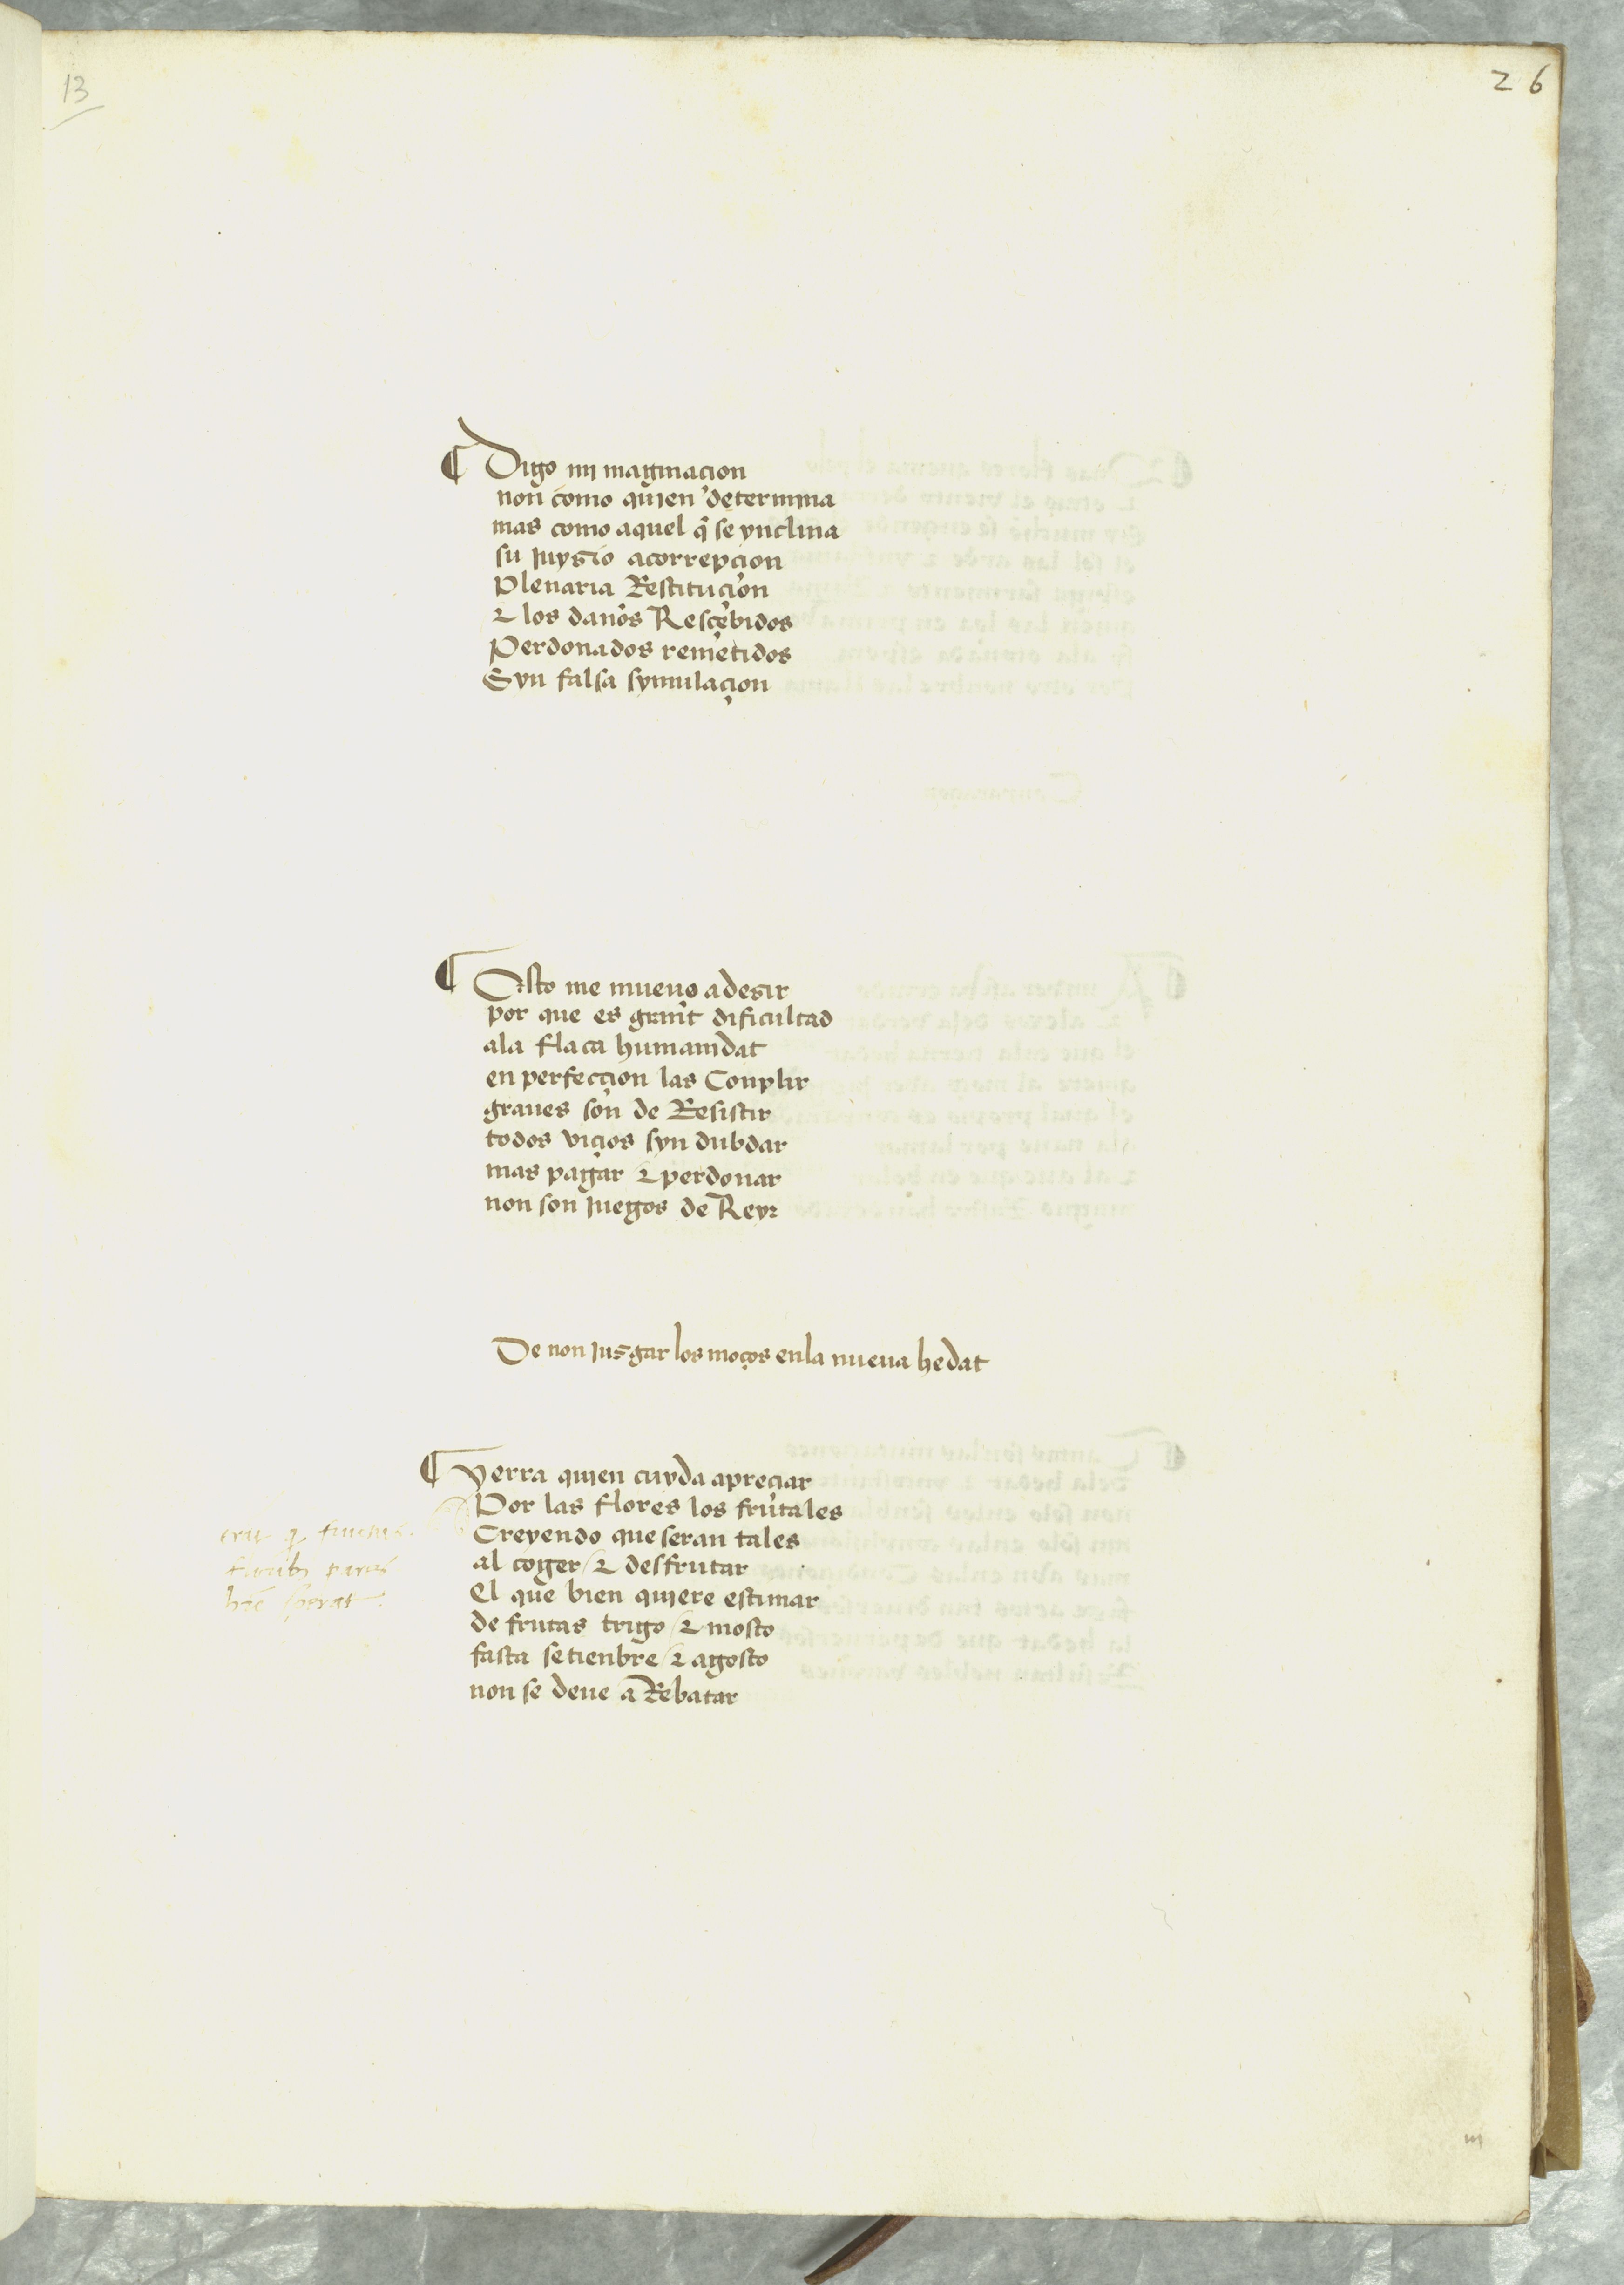 13
26
¶ Digo mi maginacion
non como quien determina
mas como aquel q̃ se ynclina
su juyzio acorrepcion
Plenaria Restituçion
⁊ los daños Resçebidos
Perdonados remetidos
Syn falsa symulaçion
¶ Esto me mueuo adezir
por que es grant dificultad
ala flaca humanidat
en perfecçion las Conplir
graues son de Resistir
todos viçios syn dubdar
mas pagar ⁊ perdonar
non son juegos de Reyr
De non juzgar los moços enla nueua hedat
¶ yerra quien cuyda apreciar
Por las flores los frutales
Creyendo que seran tales
al coger / ⁊ desfrutar
El que bien quiere estimar
de frutas trigo / ⁊ mosto
fasta setienbre / ⁊ agosto
non se deue a Rebatar
sperat